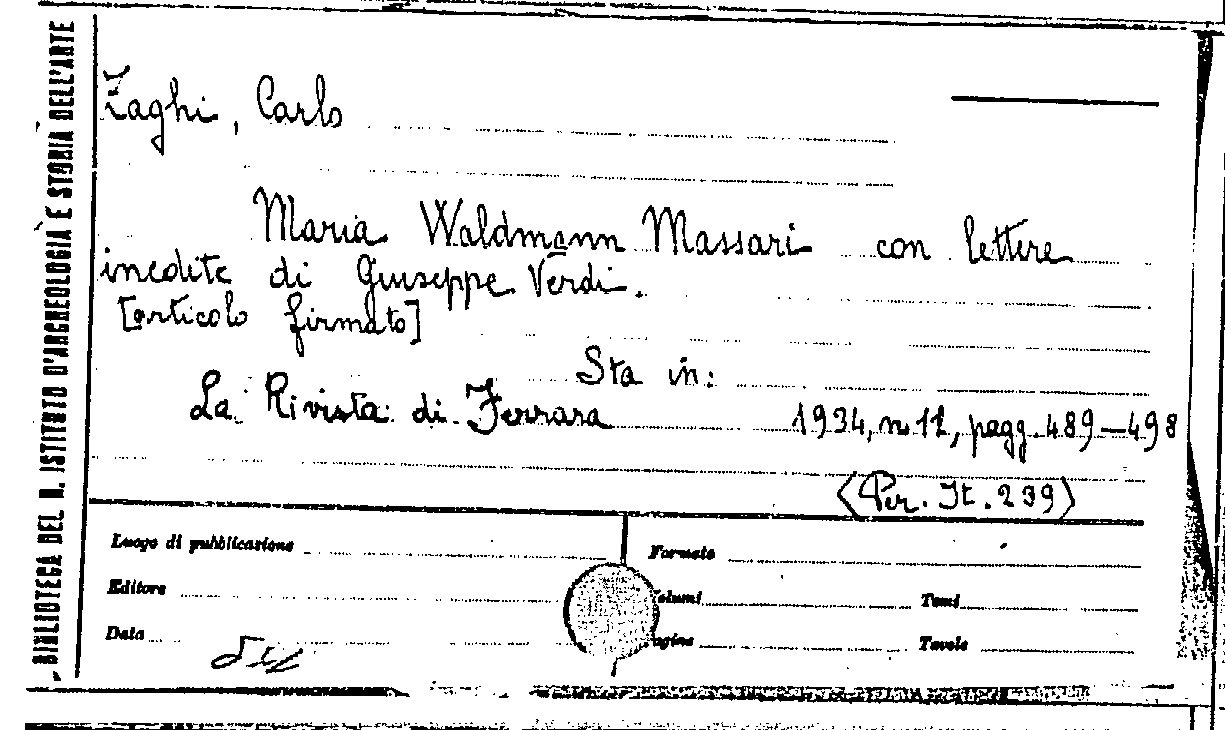 BIBLIOTECA DEL R. ISTITUTO D'ARCHEOLOGIA E STORIA DELL'ARTE
Zaghi, Carlo
Maria Waldmann Massari con lettere
inedite di Giuseppe Verdi.
[articolo firmato]
Sta in:
La Rivista di Ferrara 1934, n. 11, pagg. 489-498
(Per. It. 239)
Luogo di pubblicazione
Formato
Editore
Volumi
Tomi
Data
Pagine
Tavole